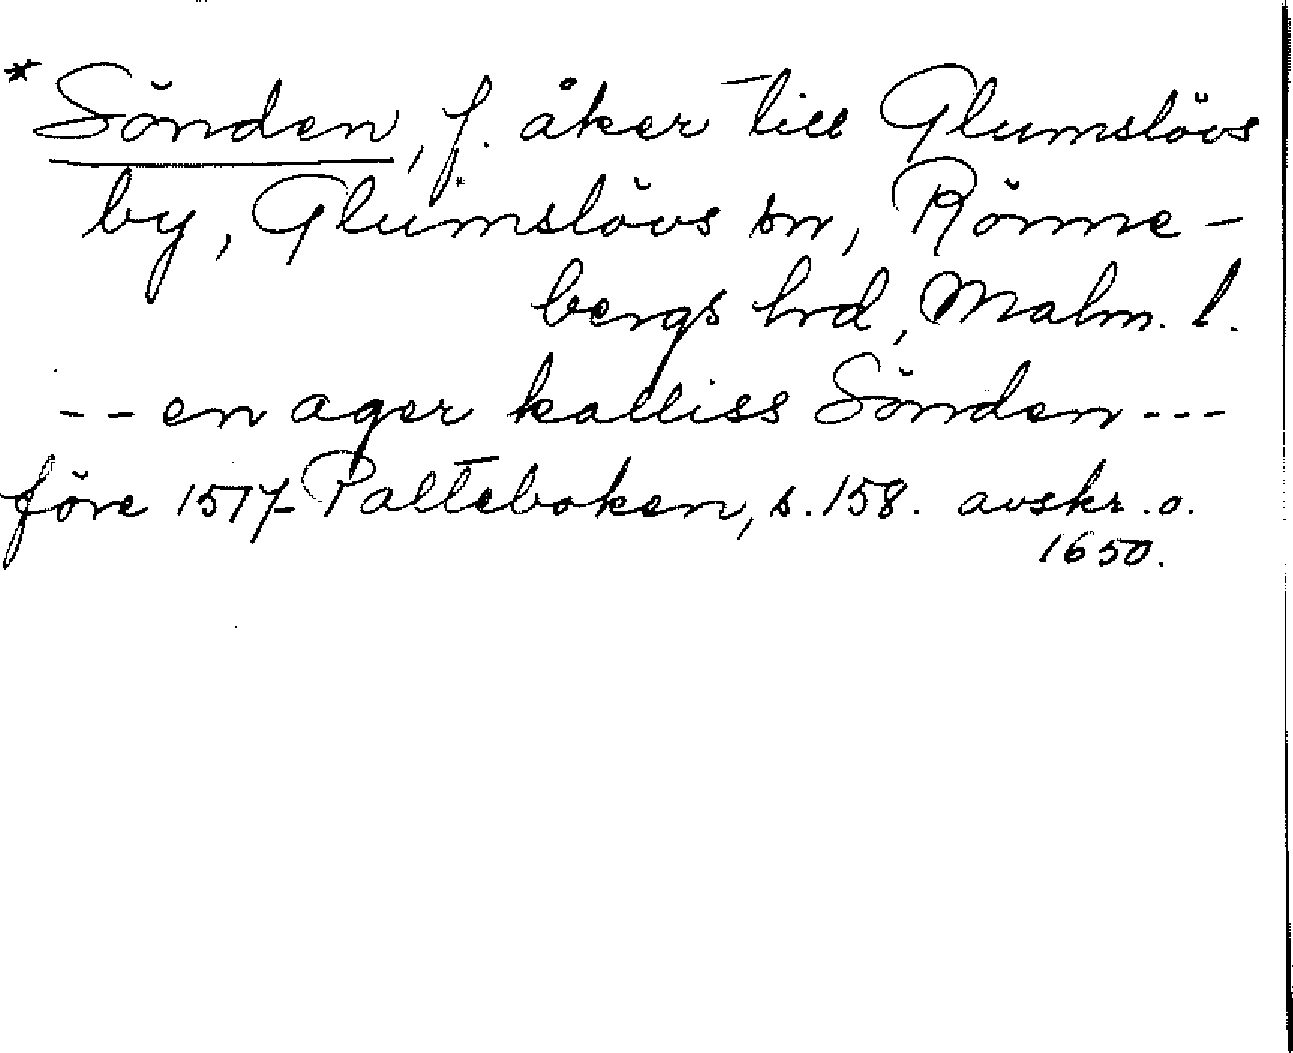 * Sönden, f. åker till Glumslövs
by, Glumslövs sn, Rönne-
bergs hrd, Malm. l.
-- en ager kalliss Sönden ---
före 1517 Palteboken, s. 158. avskr. o.
1650.